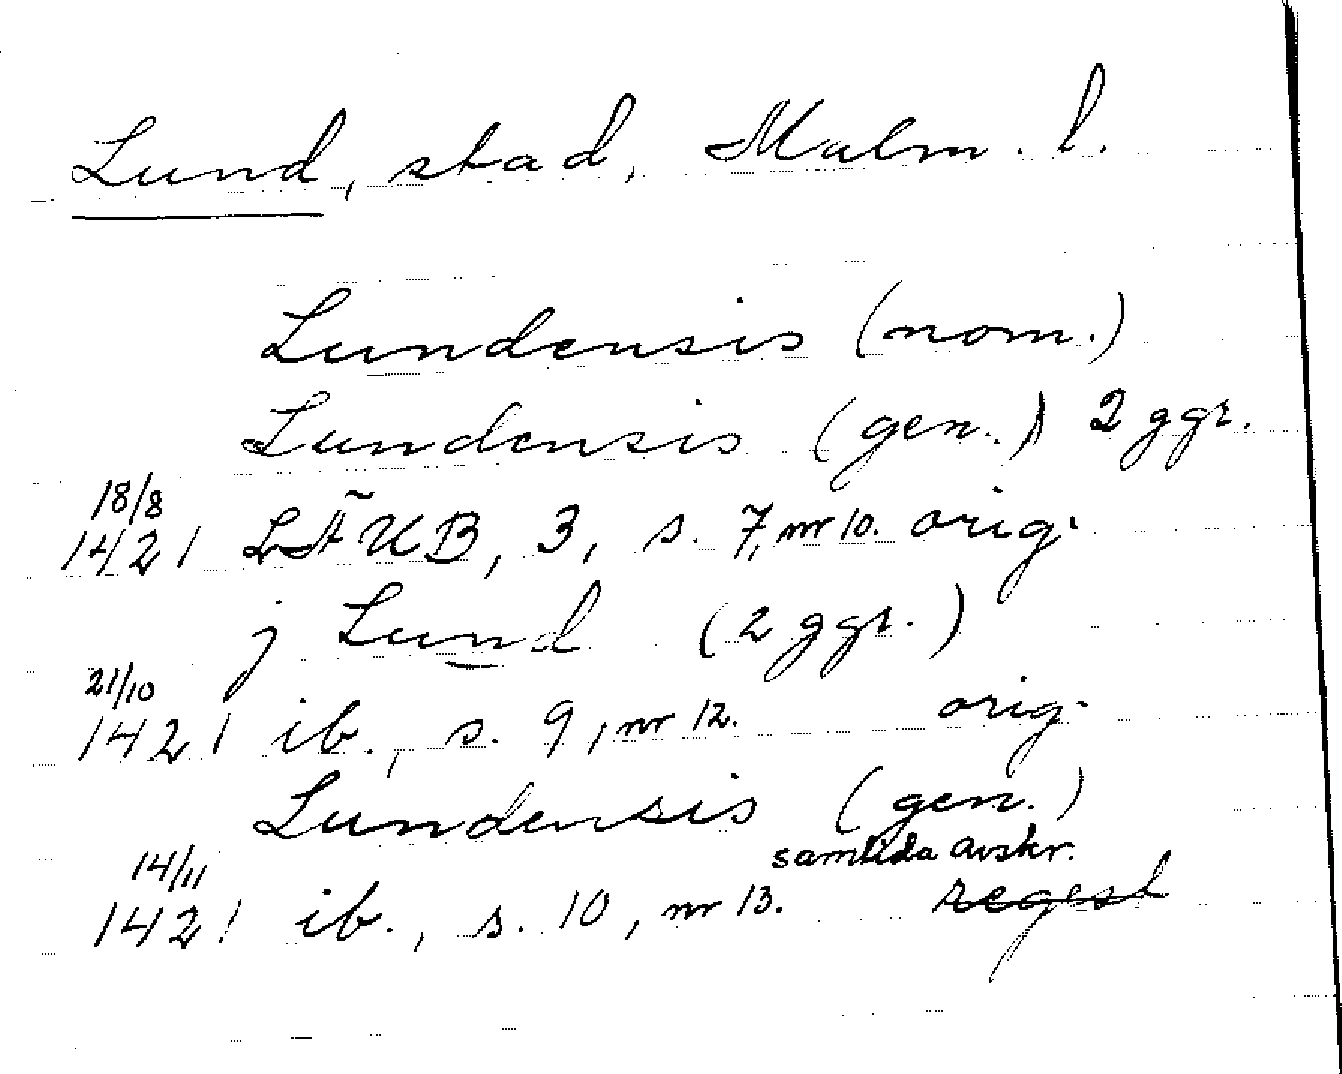 Lund, stad, Malm. l.
Lundensis (nom.)
Lundensis (gen.) 2 ggr.
18/8
1421 LÄUB, 3, s. 7, nr 10. orig.
j Lund (2 ggr.)
21/10
1421 ib., s. 9, nr 12. orig.
Lundensis (gen.)
samtida avskr.
14/11
1421 ib., s. 10, nr 13. regest